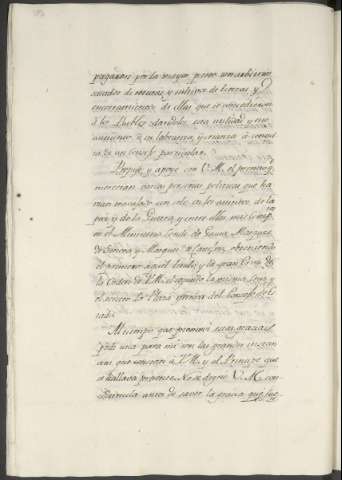 pagaran por la mayor parte con arbitrios
sacados de montes, y cultivos de tierras, y
cerramientos de ellas que se concedieron
à los Pueblos dandoles esta utilidad, y no
aumento à su labranza, y crianza à consul
ta de un Consejo particular.
Propuse, y apoyé con V. M. el premio q.
merecian varias personas políticas que ha
vian travajado con celo en los asuntos de la
paz y de la Guerra, y entre ellas
el Ministro Conde de Gausa, Marques
de Sonora y Marques de obteniendo
el primero aquel titulo, y la gran Cruz de
la Orden de V. M. el segundo la misma Cruz y
el tercero la Plaza efectiva del Consejo de Es
tado.
Al tiempo que promoví estas gracias
pedí una para mi con las grandes instan
cias que constan à V. M. y el Principe que
se hallava presente. No se dignó V. M. con
descendió antes de saver la gracia que fue